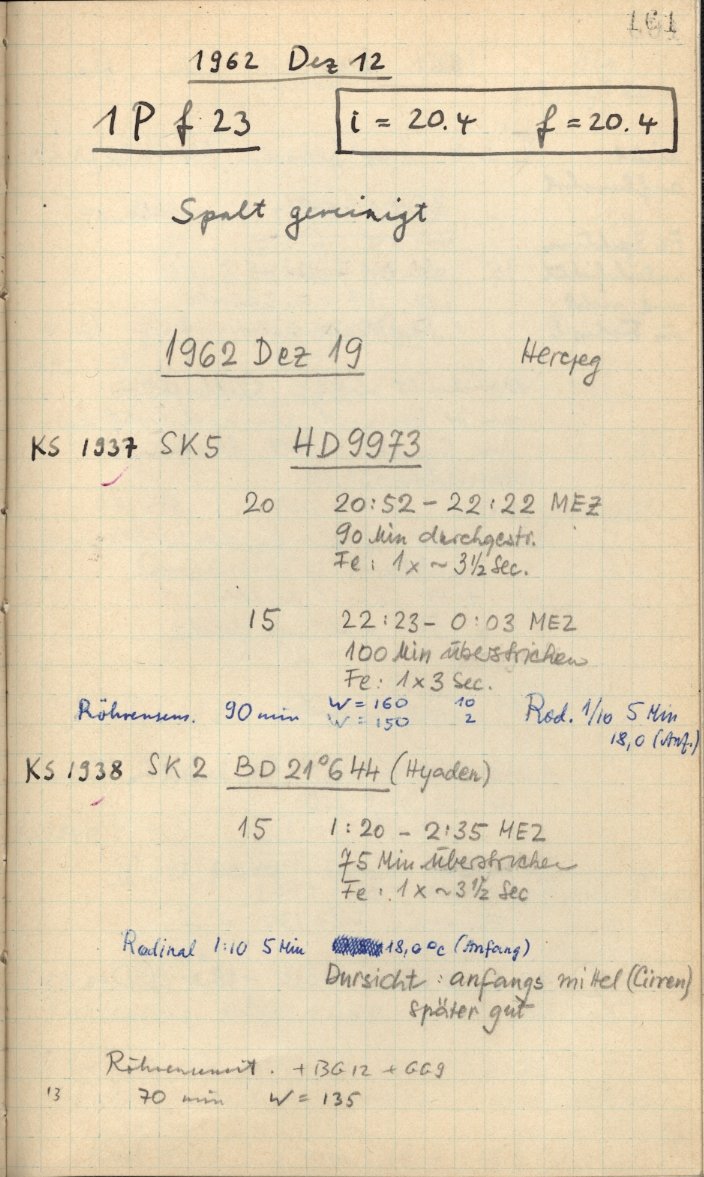 161
1962 Dez 12
1P f 23 i = 20.4 f = 20.4
Spalt gereinigt
1962 Dez 19 Herczeg
KS 1937 SK5 HD9973
20 20:52 – 22:22 MEZ
90 Min durchgestr.
Fe: 1x ~ 3½ Sec.
15 22:23 – 0:03 MEZ
100 Min überstrichen
Fe: 1x3 Sec.
Röhrensens. 90 min W = 160 10 Rod. 1/10 5 Min
W = 150 2 18,0 (Anf.)
KS 1938 SK2 BD 21°644 (Hyaden)
15 1:20 – 2:35 MEZ
75 Min überstrichen
Fe: 1x ~3½ Sec
Rodinal 1:10 5 Min 18,0°C (Anfang)
Dursicht: anfangs mittel (Cirren)
später gut
+ BG12 + GG9
13 70 min W = 135